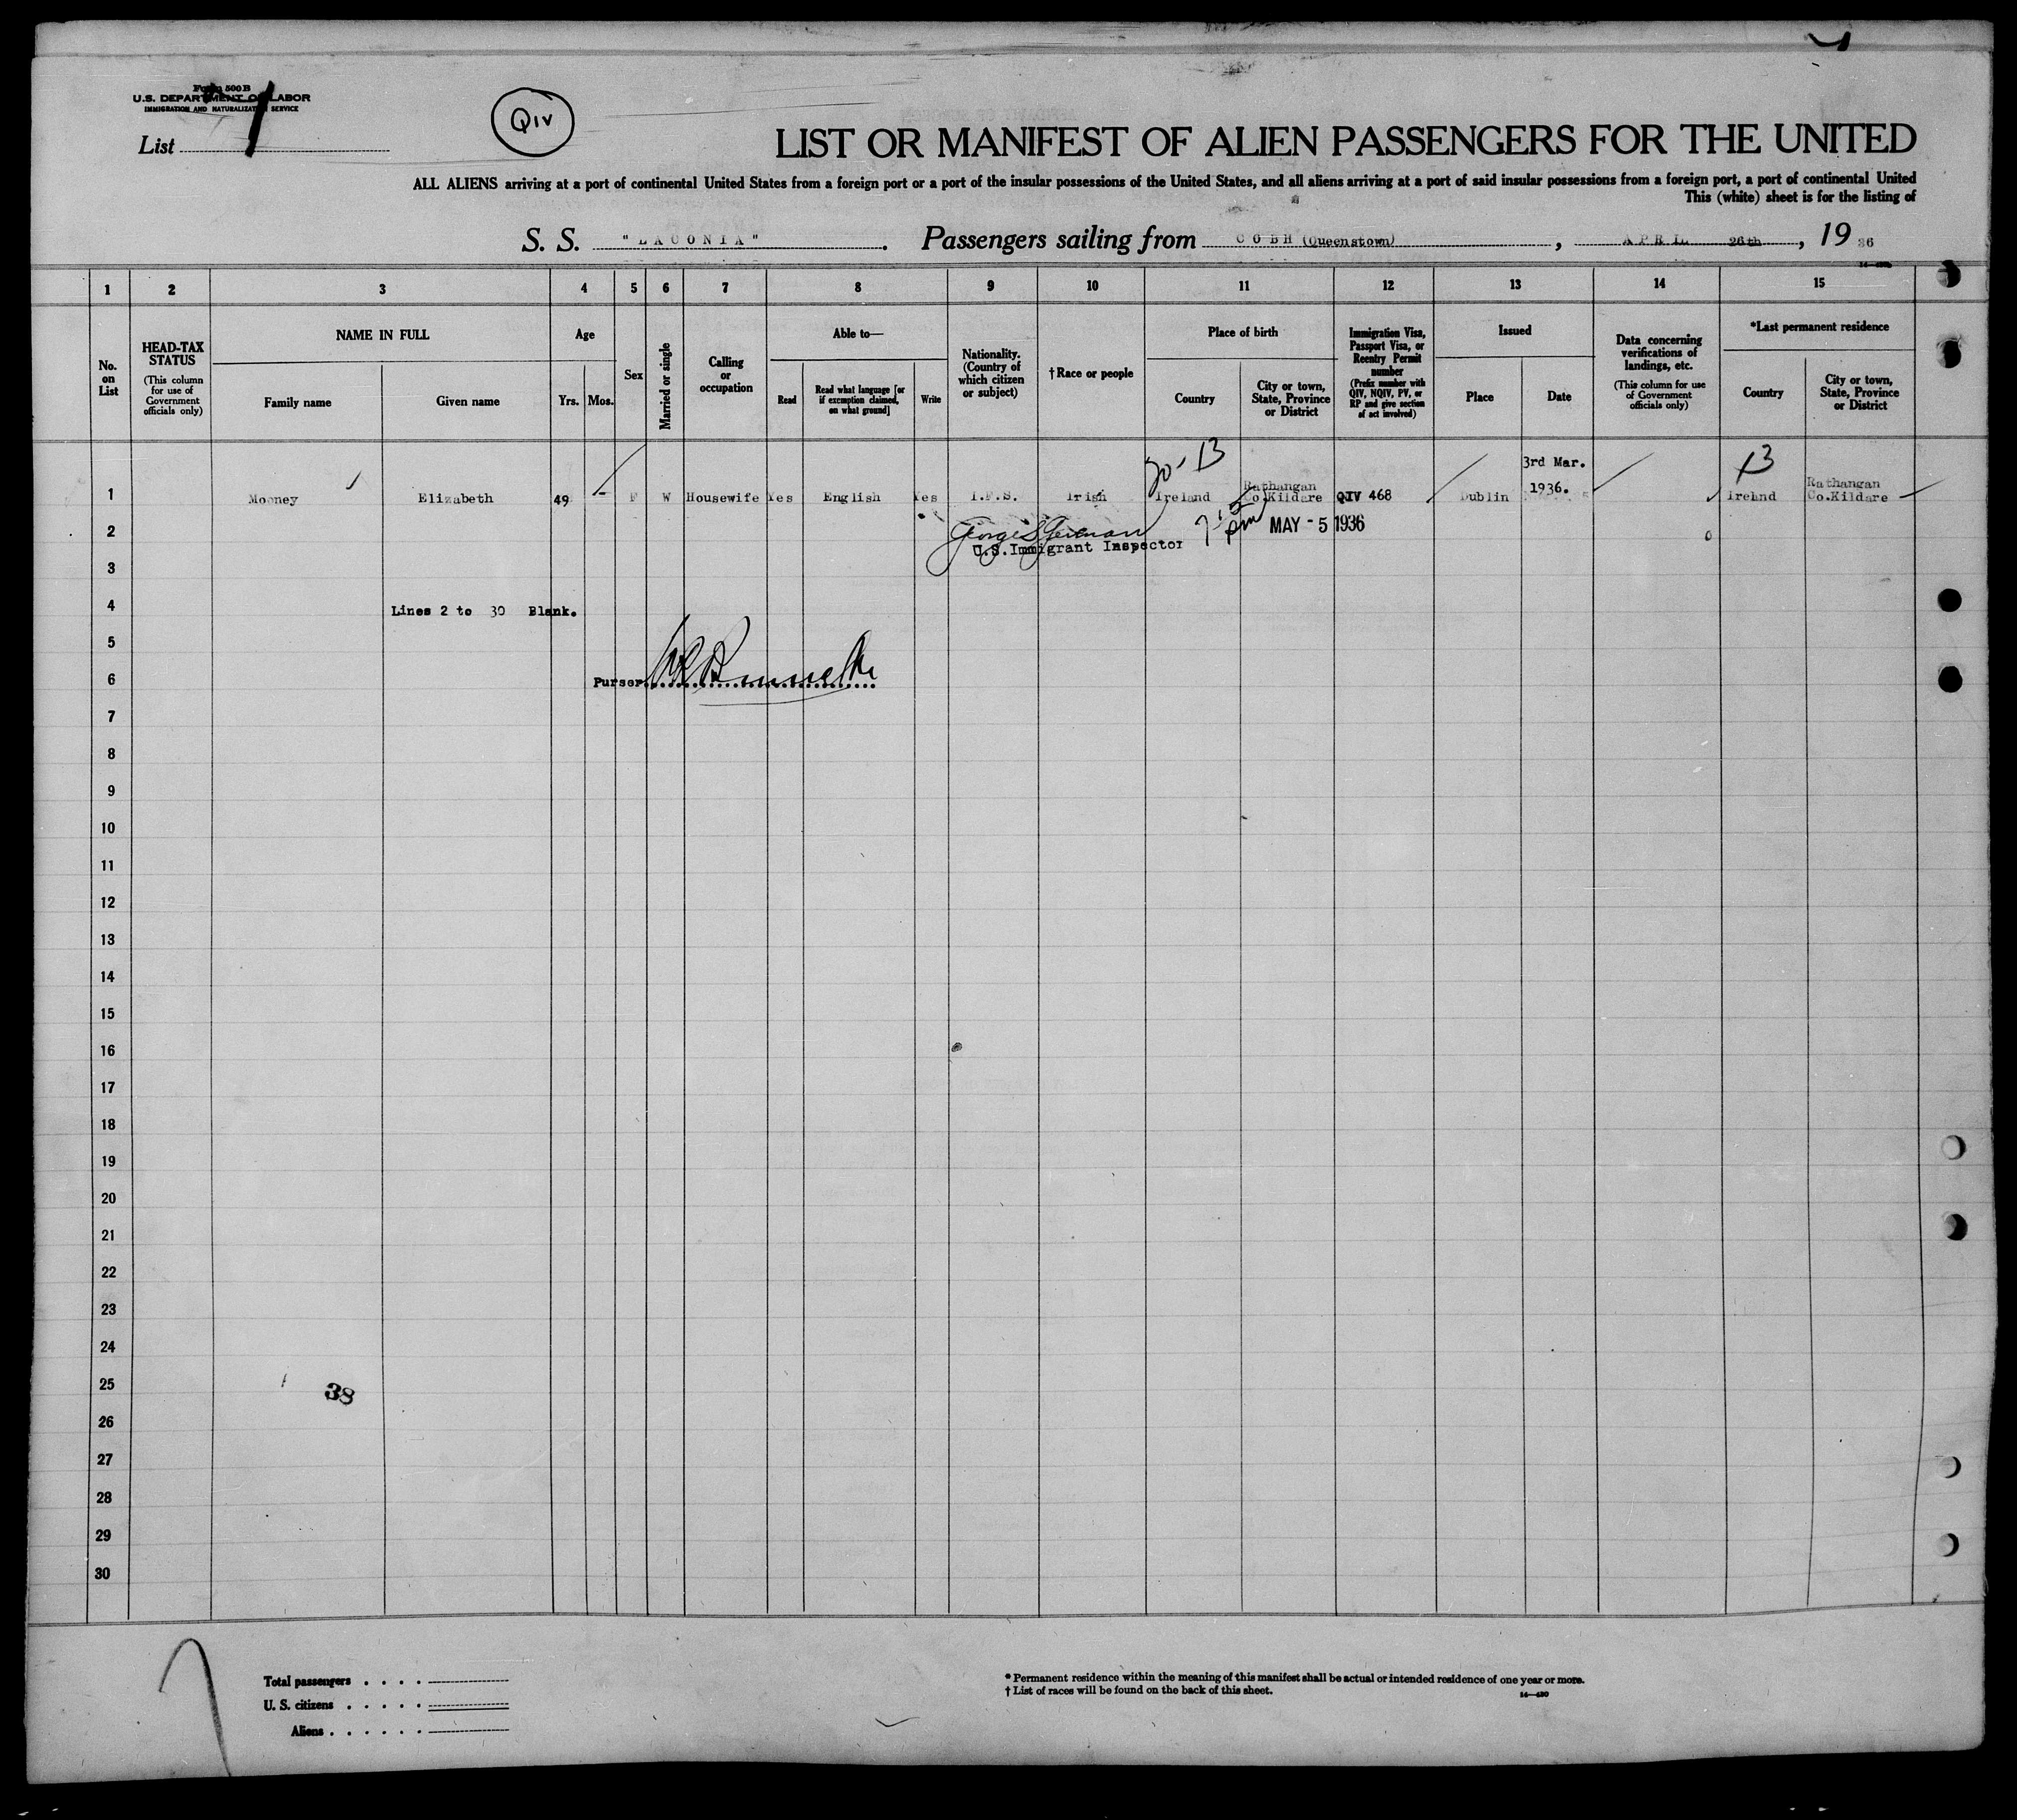 Form 500 B
U.S. DEPARTMENT OF LABOR
IMMIGRATION AND NATURALIZATION SERVICE
List 1
QIV
LIST OR MANIFEST OF ALIEN PASSENGERS FOR THE UNITED
ALL ALIENS arriving at a port of continental United States from a foreign port or a port of the insular possessions of the United States, and all aliens arriving at a port of said insular possessions from a foreign port, a port of continental United
This (white) sheet is for the listing of
S. S. "LACONIA". Passengers sailing from COBH (Queenstown), APRL 26th, 19 36
1 2 3 4 5 6 7 8 9 10 11 12 13 14 15
No. on List
HEAD-TAX STATUS
(This column for use of Government officials only)
NAME IN FULL
Family name
Given name
Age
Yrs. Mos.
Sex
Married or single
Calling or occupation
Able to—
Read
Read what language [or if exemption claimed, on what ground]
Write
Nationality. (Country of which citizen or subject)
†Race or people
Place of birth
Country
City or town, State, Province or District
Immigration Visa, Passport Visa, or Reentry Permit number
(Prefix number with QIV, NQIV, PV, or RP and give section of act involved)
Issued
Place
Date
Data concerning verifications of landings, etc.
(This column for use of Government officials only)
*Last permanent residence
Country
City or town, State, Province or District
1 Mooney Elizabeth 49 - F W Housewife Yes English Yes I.F.S. Irish Ireland Rathangan Co.Kildare QIV 468 Dublin 3rd Mar. 1936. Irelnd Rathangan Co.Kildare
2 MAY - 5 1936
U.S.Immigrant Inspector
3
4 Lines 2 to 30 Blank.
5
6 Purser
7
8
9
10
11
12
13
14
15
16
17
18
19
20
21
22
23
24
25 38
26
27
28
29
30
Total passengers
U. S. citizens
Aliens
* Permanent residence within the meaning of this manifest shall be actual or intended residence of one year or more.
† List of races will be found on the back of this sheet.
14—430